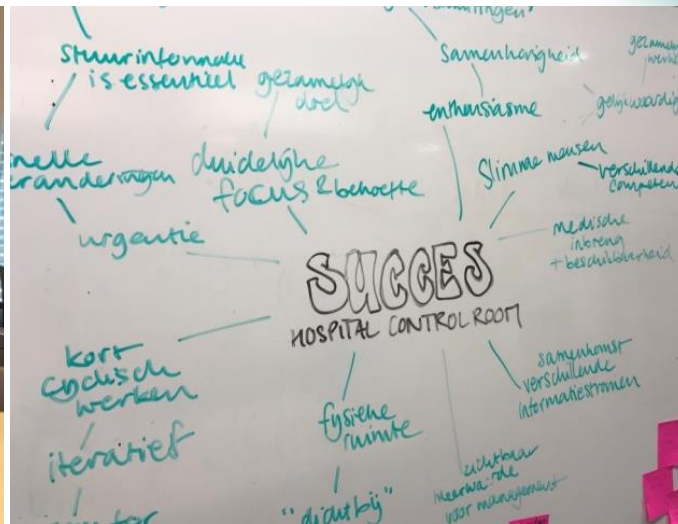 Stuurinformatie
is essentieel
gezamelijk
doel
Samenhorigheid
enthousiasme
gelijkwaardig
nelle
eranderingen
duidelijke
focus & behoefte
Slimme mensen
verschillende
competen
urgentie
medische
inbreng
+ beschikbaarheid
SUCCES
HOSPITAL CONTROL ROOM
kort
cyclisch
werken
samenkomst
verschillende
informatiestromen
fysieke
ruimte
iteratief
zichtbaar
meerwaarde
voor management
"dichtbij"